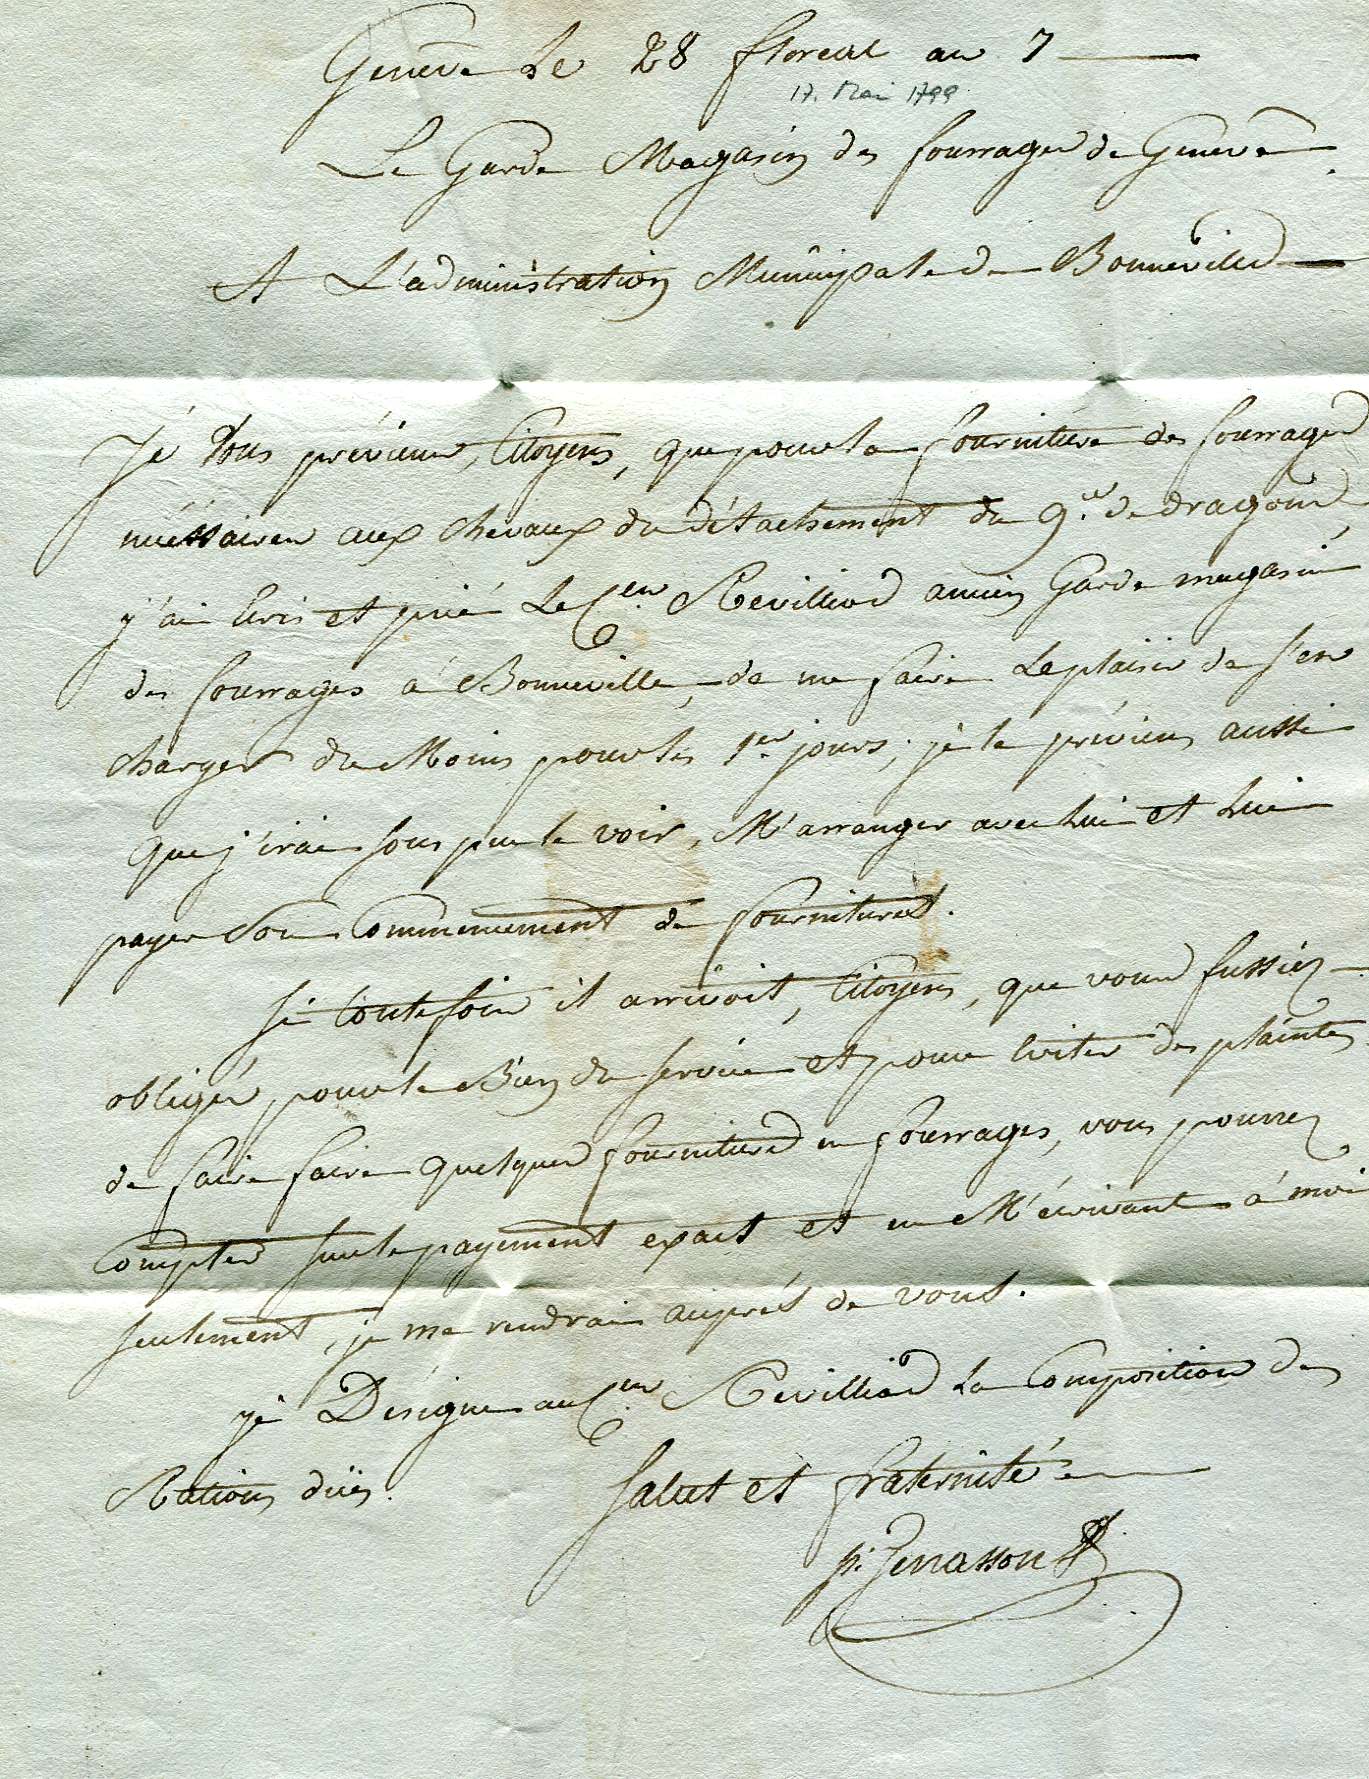 Genève Le 28 floreal an 7
17. Mai 1799
Le Garde Magasin des fourrages de Genève
A L'administration Municipale de Bonneville
Jé Vous préviens, Citoyens, que pour la fourniture des fourrages
nécéssaires aux chevaux du détachement du 9.e de dragons
j'ai Ecris et prié Le C.en Revilliod ancien Garde magasin
des fourrages á Bonneville, de me faire Le plaisir de s'en
charger du Moins pour les 1.er jours; jé le préviens aussi
que j'irai sous peu le voir, M'arranger avec Lui et Lui
payer Son Commencement de fournitures.
Si toutefois il arrivoit, Citoyens, que vous fussiéz
obligés, pour le Bien du service et pour Eviter des plaintes
de faire faire quelques fournitures en fourrages, vous pourrez
Compter sur le payement exact et en M'écrivant á moi
seulement, je me rendrai auprés de vous.
jé Désigne au C.en Revilliod La Composition des
Rations düës.
Salut et fraternité